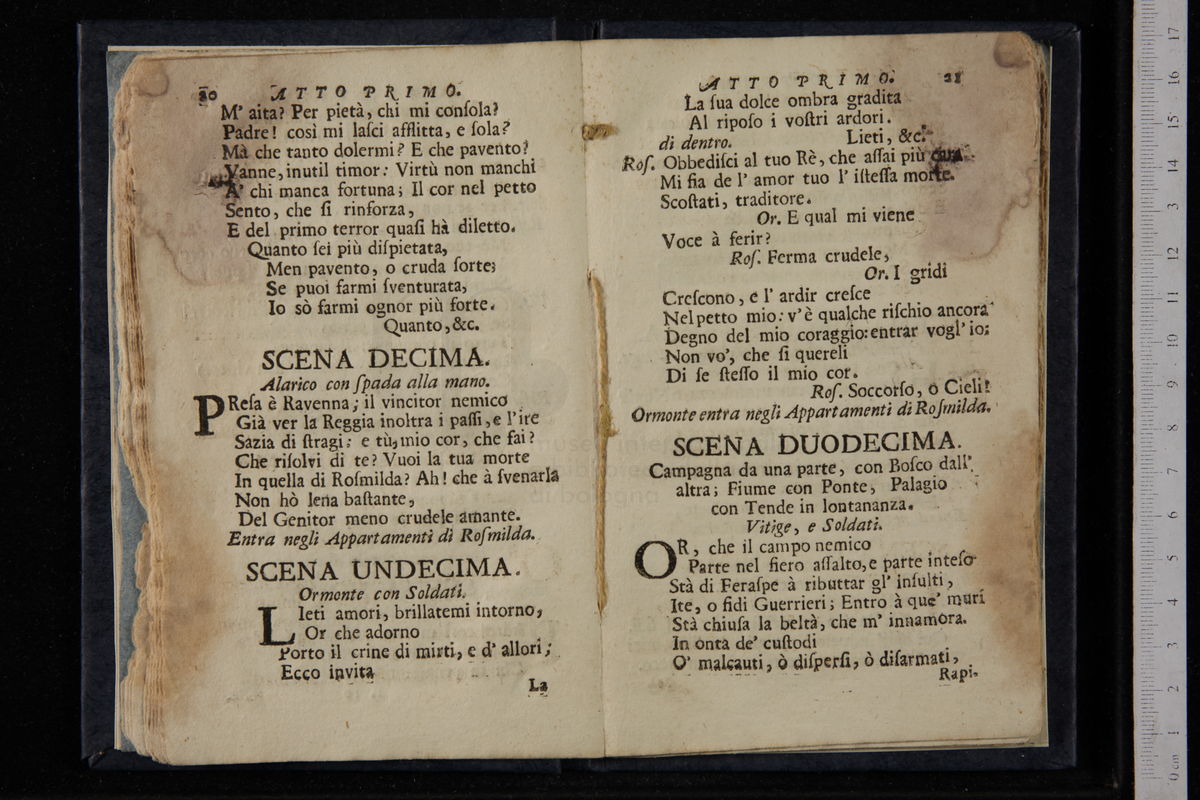 20 ATTO PRIMO.
M' aita? Per pietà, chi mi conſola?
Padre! così mi laſci afflitta, e ſola?
Mà che tanto dolermi? E che pavento?
Vanne, inutil timor: Virtù non manchi
A' chi manca fortuna; Il cor nel petto
Sento, che ſi rinforza,
E del primo terror quaſi hà diletto.
Quanto ſei più diſpietata,
Men pavento, o cruda ſorte;
Se puoi farmi ſventurata,
Io sò farmi ognor più forte.
Quanto, &c.
SCENA DECIMA.
Alarico con ſpada alla mano.
PReſa è Ravenna; il vincitor nemico
Già ver la Reggia inoltra i paſſi, e l'ire
Sazia di ſtragi: e tù, mio cor, che fai?
Che riſolvi di te? Vuoi la tua morte
In quella di Roſmilda? Ah! che à ſvenarla
Non hò lena baſtante,
Del Genitor meno crudele amante.
Entra negli Appartamenti di Roſmilda.
SCENA UNDECIMA.
Ormonte con Soldati.
LIeti amori, brillatemi intorno,
Or che adorno
Porto il crine di mirti, e d' allori;
Ecco invita
La
ATTO PRIMO. 21
La ſua dolce ombra gradita
Al ripoſo i voſtri ardori.
di dentro. Lieti, &c.
Roſ. Obbediſci al tuo Rè, che aſſai più cara
Mi fia de l' amor tuo l' iſteſſa morte.
Scoſtati, traditore.
Or. E qual mi viene
Voce à ferir?
Roſ. Ferma crudele,
Or. I gridi
Creſcono, e l' ardir creſce
Nel petto mio: v'è qualche riſchio ancora
Degno del mio coraggio: entrar vogl' io;
Non vo', che ſi quereli
Di ſe ſteſſo il mio cor.
Roſ. Soccorſo, o Cieli!
Ormonte entra negli Appartamenti di Roſmilda.
SCENA DUODECIMA.
Campagna da una parte, con Boſco dall'
altra; Fiume con Ponte, Palagio
con Tende in lontananza.
Vitige, e Soldati.
OR, che il campo nemico
Parte nel fiero aſſalto, e parte inteſo
Stà di Feraſpe à ributtar gl' inſulti,
Ite, o fidi Guerrieri; Entro à que' muri
Stà chiuſa la beltà, che m' innamora.
In onta de' cuſtodi
O' malcauti, ò diſperſi, ò diſarmati,
Rapi-